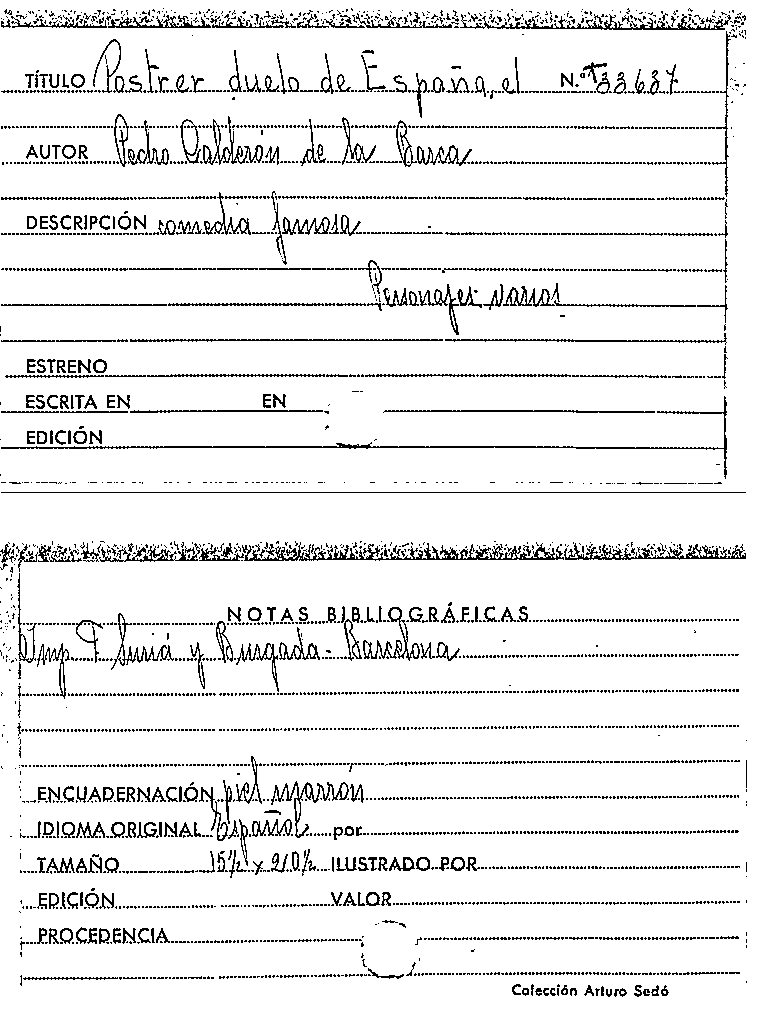 TÍTULO Postrer duelo de España, el N.º T33637
AUTOR Pedro Calderón de la Barca
DESCRIPCIÓN comedia famosa
Personajes varios
ESTRENO
ESCRITA EN EN
EDICIÓN
NOTAS BIBLIOGRÁFICAS
Imp F Suriá y Burgada - Barcelona
ENCUADERNACIÓN piel marrón
IDIOMA ORIGINAL Español por
TAMAÑO ILUSTRADO POR
EDICIÓN VALOR
PROCEDENCIA
Colección Arturo Sedó